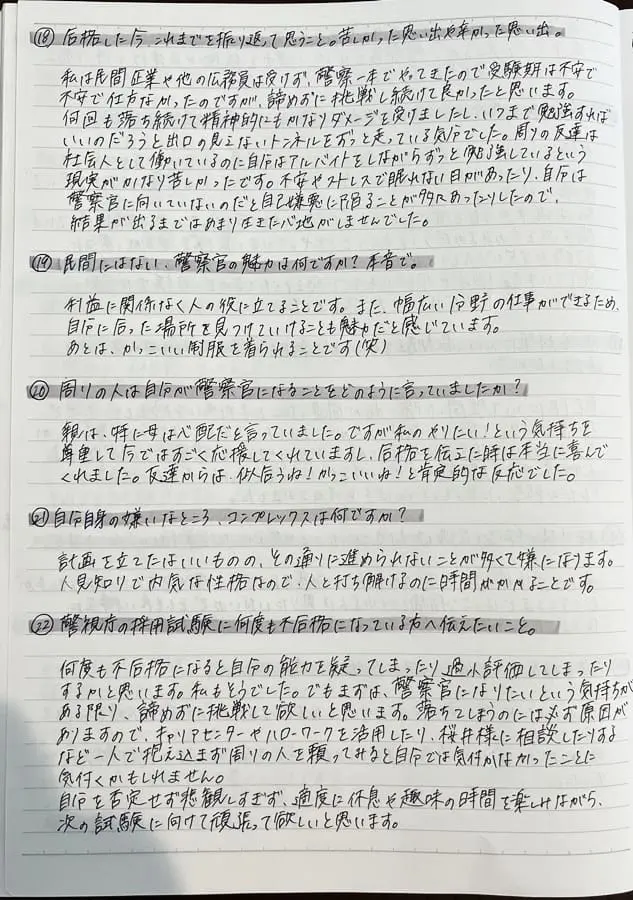 ⑱ 合格した今、これまでを振り返って思うこと。苦しかった思い出や辛かった思い出。
私は民間企業や他の公務員は受けず、警察一本でやってきたので受験期は不安で
不安で仕方なかったのですが、諦めずに挑戦し続けて良かったと思います。
何回も落ち続けて精神的にもかなりダメージを受けましたし、いつまで勉強すれば
いいのだろうと出口の見えないトンネルをずっと走っている気分でした。周りの友達は
社会人として働いているのに自分はアルバイトをしながらずっと勉強しているという
現実がかなり苦しかったです。不安やストレスで眠れない日があったり、自分は
警察官に向いていないのだと自己嫌悪に陥ることが多々あったりしたので、
結果が出るまではあまり生きた心地がしませんでした。
⑲ 民間にはない、警察官の魅力は何ですか?本音で。
利益に関係なく人の役に立てることです。また、幅広い分野の仕事ができるため、
自分に合った場所を見つけていけることも魅力だと感じています。
あとは、かっこいい制服を着られることです(笑)
⑳ 周りの人は自分が警察官になることをどのように言っていましたか?
親は、特に母は心配だと言っていました。ですが私のやりたい!という気持ちを
尊重して今ではすごく応援してくれていますし、合格を伝えた時は本当に喜んで
くれました。友達からは、似合うね!かっこいいね!と肯定的な反応でした。
㉑ 自分自身の嫌いなところ、コンプレックスは何ですか?
計画を立てたはいいものの、その通りに進められないことが多くて嫌になります。
人見知りで内気な性格なので、人と打ち解けるのに時間がかかることです。
㉒ 警視庁の採用試験に何度も不合格になっている方へ伝えたいこと。
何度も不合格になると自分の能力を疑ってしまったり過小評価してしまったり
するかと思います。私もそうでした。でもまずは、警察官になりたいという気持ちが
ある限り、諦めずに挑戦して欲しいと思います。落ちてしまうのには必ず原因が
ありますので、キャリアセンターやハローワークを活用したり、桜井様に相談したりする
など一人で抱え込まず周りの人を頼ってみると自分では気付かなかったことに
気付くかもしれません。
自分を否定せず悲観しすぎず、適度に休息や趣味の時間を楽しみながら、
次の試験に向けて頑張って欲しいと思います。